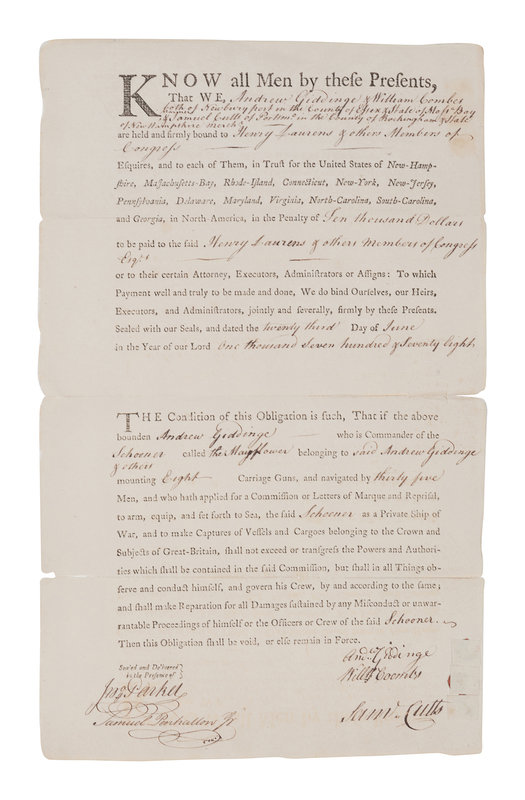 KNOW all Men by theſe Preſents,
That WE, Andrew Giddinge & William Combes
both of Newbury port in the County of Eſſex & State of Maſsa Bay
& Samuel Cutts of Portsmo in the County of Rockingham & State
of New Hampshire Merch
are held and firmly bound to Henry Laurens & others Members of
Congreſs
Eſquires, and to each of Them, in Truſt for the United States of New-Hamp-
ſhire, Maſſachuſetts-Bay, Rhode-Iſland, Connecticut, New-York, New-Jerſey,
Pennſylvania, Delaware, Maryland, Virginia, North-Carolina, South-Carolina,
and Georgia, in North-America, in the Penalty of Ten thousand Dollars
to be paid to the ſaid Henry Laurens & others members of Congreſs
Esqrs
or to their certain Attorney, Executors, Adminiſtrators or Aſſigns: To which
Payment well and truly to be made and done, We do bind Ourſelves, our Heirs,
Executors, and Adminiſtrators, jointly and ſeverally, firmly by theſe Preſents.
Sealed with our Seals, and dated the twenty third Day of June
in the Year of our Lord One thousand Seven hundred & Seventy Eight
THE Condition of this Obligation is ſuch, That if the above
bounden Andrew Giddinge who is Commander of the
Schooner called the Mayflower belonging to said Andrew Giddinge
& others
mounting Eight Carriage Guns, and navigated by thirty five
Men, and who hath applied for a Commiſſion or Letters of Marque and Repriſal,
to arm, equip, and ſet forth to Sea, the ſaid Schooner as a Private Ship of
War, and to make Captures of Veſſels and Cargoes belonging to the Crown and
Subjects of Great-Britain, ſhall not exceed or tranſgreſs the Powers and Authori-
ties which ſhall be contained in the ſaid Commiſſion, but ſhall in all Things ob-
ſerve and conduct himſelf, and govern his Crew, by and according to the ſame;
and ſhall make Reparation for all Damages ſuſtained by any Miſconduct or unwar-
rantable Proceedings of himſelf or the Officers or Crew of the ſaid Schooner.
Then this Obligation ſhall be void, or elſe remain in Force.
Sealed and Delivered
in the Preſence of
Andw Giddinge
Willm Coombs
Jno Parker
Samuel Penhallow Jr
Saml Cutts